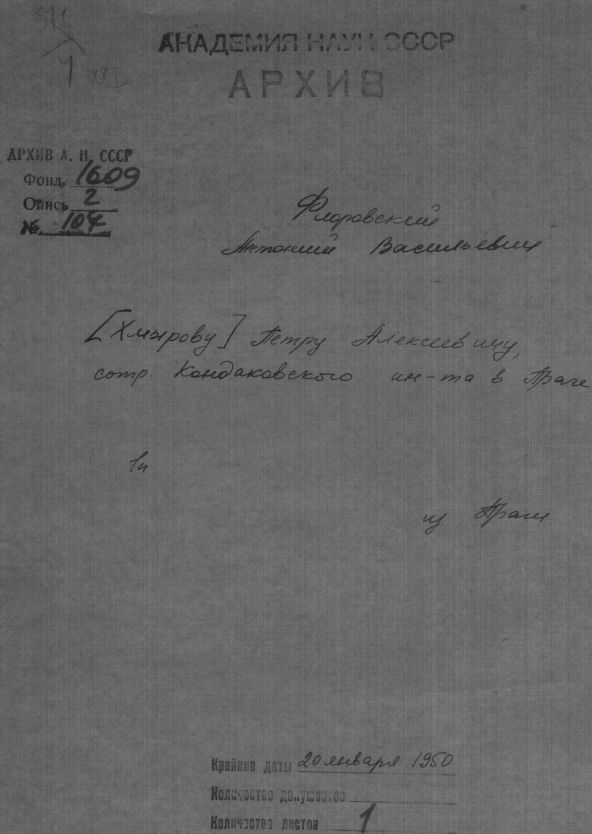 АКАДЕМИЯ НАУК СССР
АРХИВ
АРХИВ А. Н. СССР
Фонд. 1609
Опись 2
№. 104
Флоровский
Антоний Васильевич
[Хмырову] Петру Алексеевичу,
сотр. Кондаковского ин-та в Праге
1п
из Праги
Крайние даты 20 января 1950
Количество документов
Количество листов 1